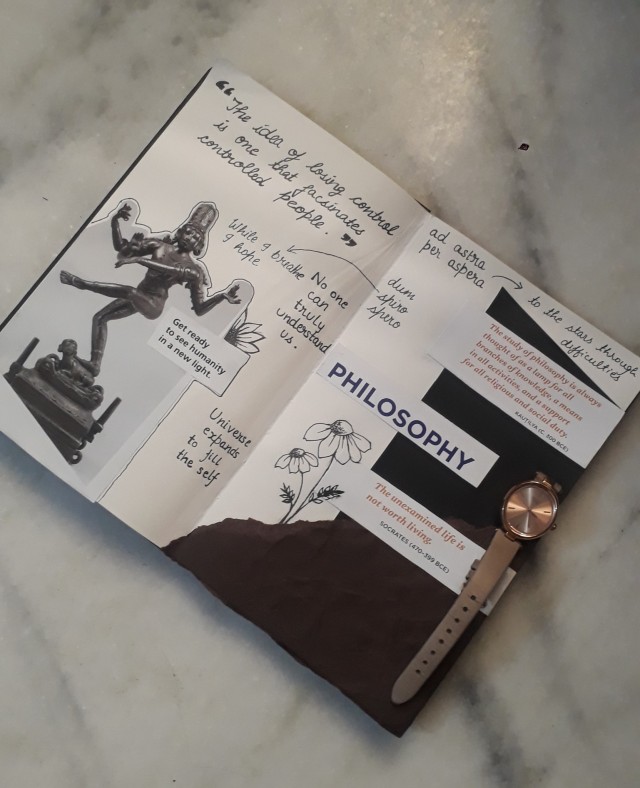 “The idea of losing control
is one that facsinates
controlled people.”
While I breathe
I hope
No one
can
truly
understand
us.
Get ready
to see humanity
in a new light
Universe
expands
to fill
the self
ad astra
per aspera
to the stars through
difficulties
dum
spiro
spero
The study of philosophy is always
thought of as a lamp for all
branches of knowledge, a means
in all activities, and a support
for all religious and social duty.
KAUTILYA (C. 300 BCE)
PHILOSOPHY
The unexamined life is
not worth living.
SOCRATES (470-399 BCE)